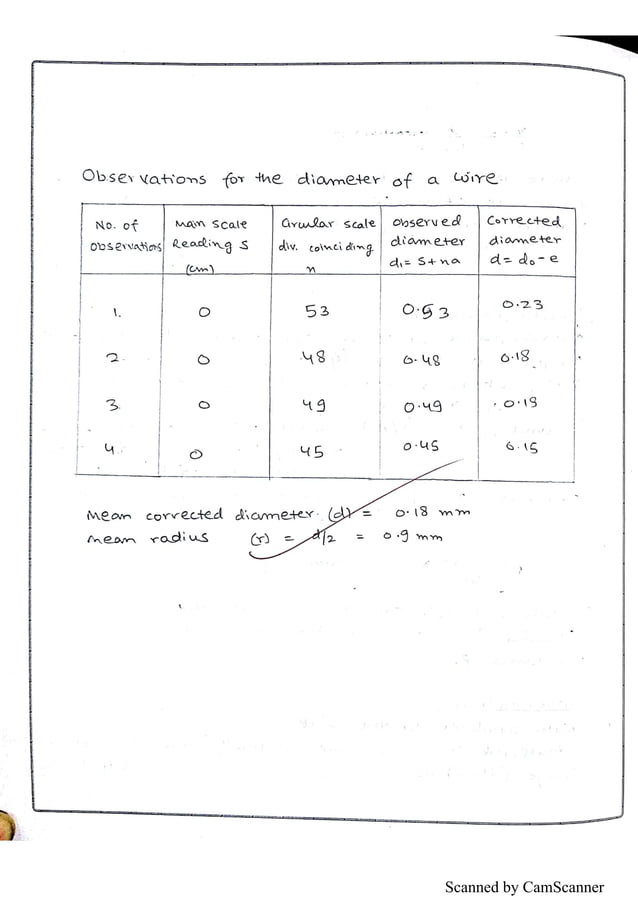 Observations for the diameter of a wire
No. of observations | Main Scale Reading S (cm) | Circular scale div. coinciding n | Observed diameter d₁ = S + na | Corrected diameter d = d₀ - e
1. | 0 | 53 | 0.53 | 0.23
2. | 0 | 48 | 0.48 | 0.18
3. | 0 | 49 | 0.49 | 0.19
4. | 0 | 45 | 0.45 | 0.15
Mean corrected diameter. (d) = 0.18 mm
mean radius (r) = d/2 = 0.9 mm
Scanned by CamScanner